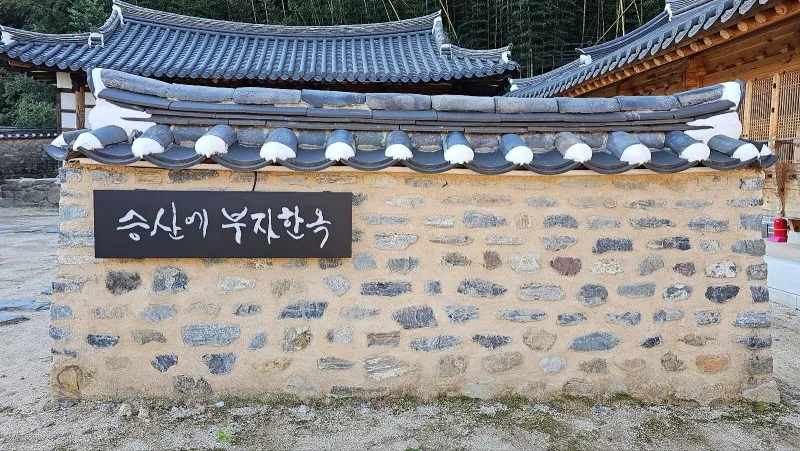 승산에 부자한옥